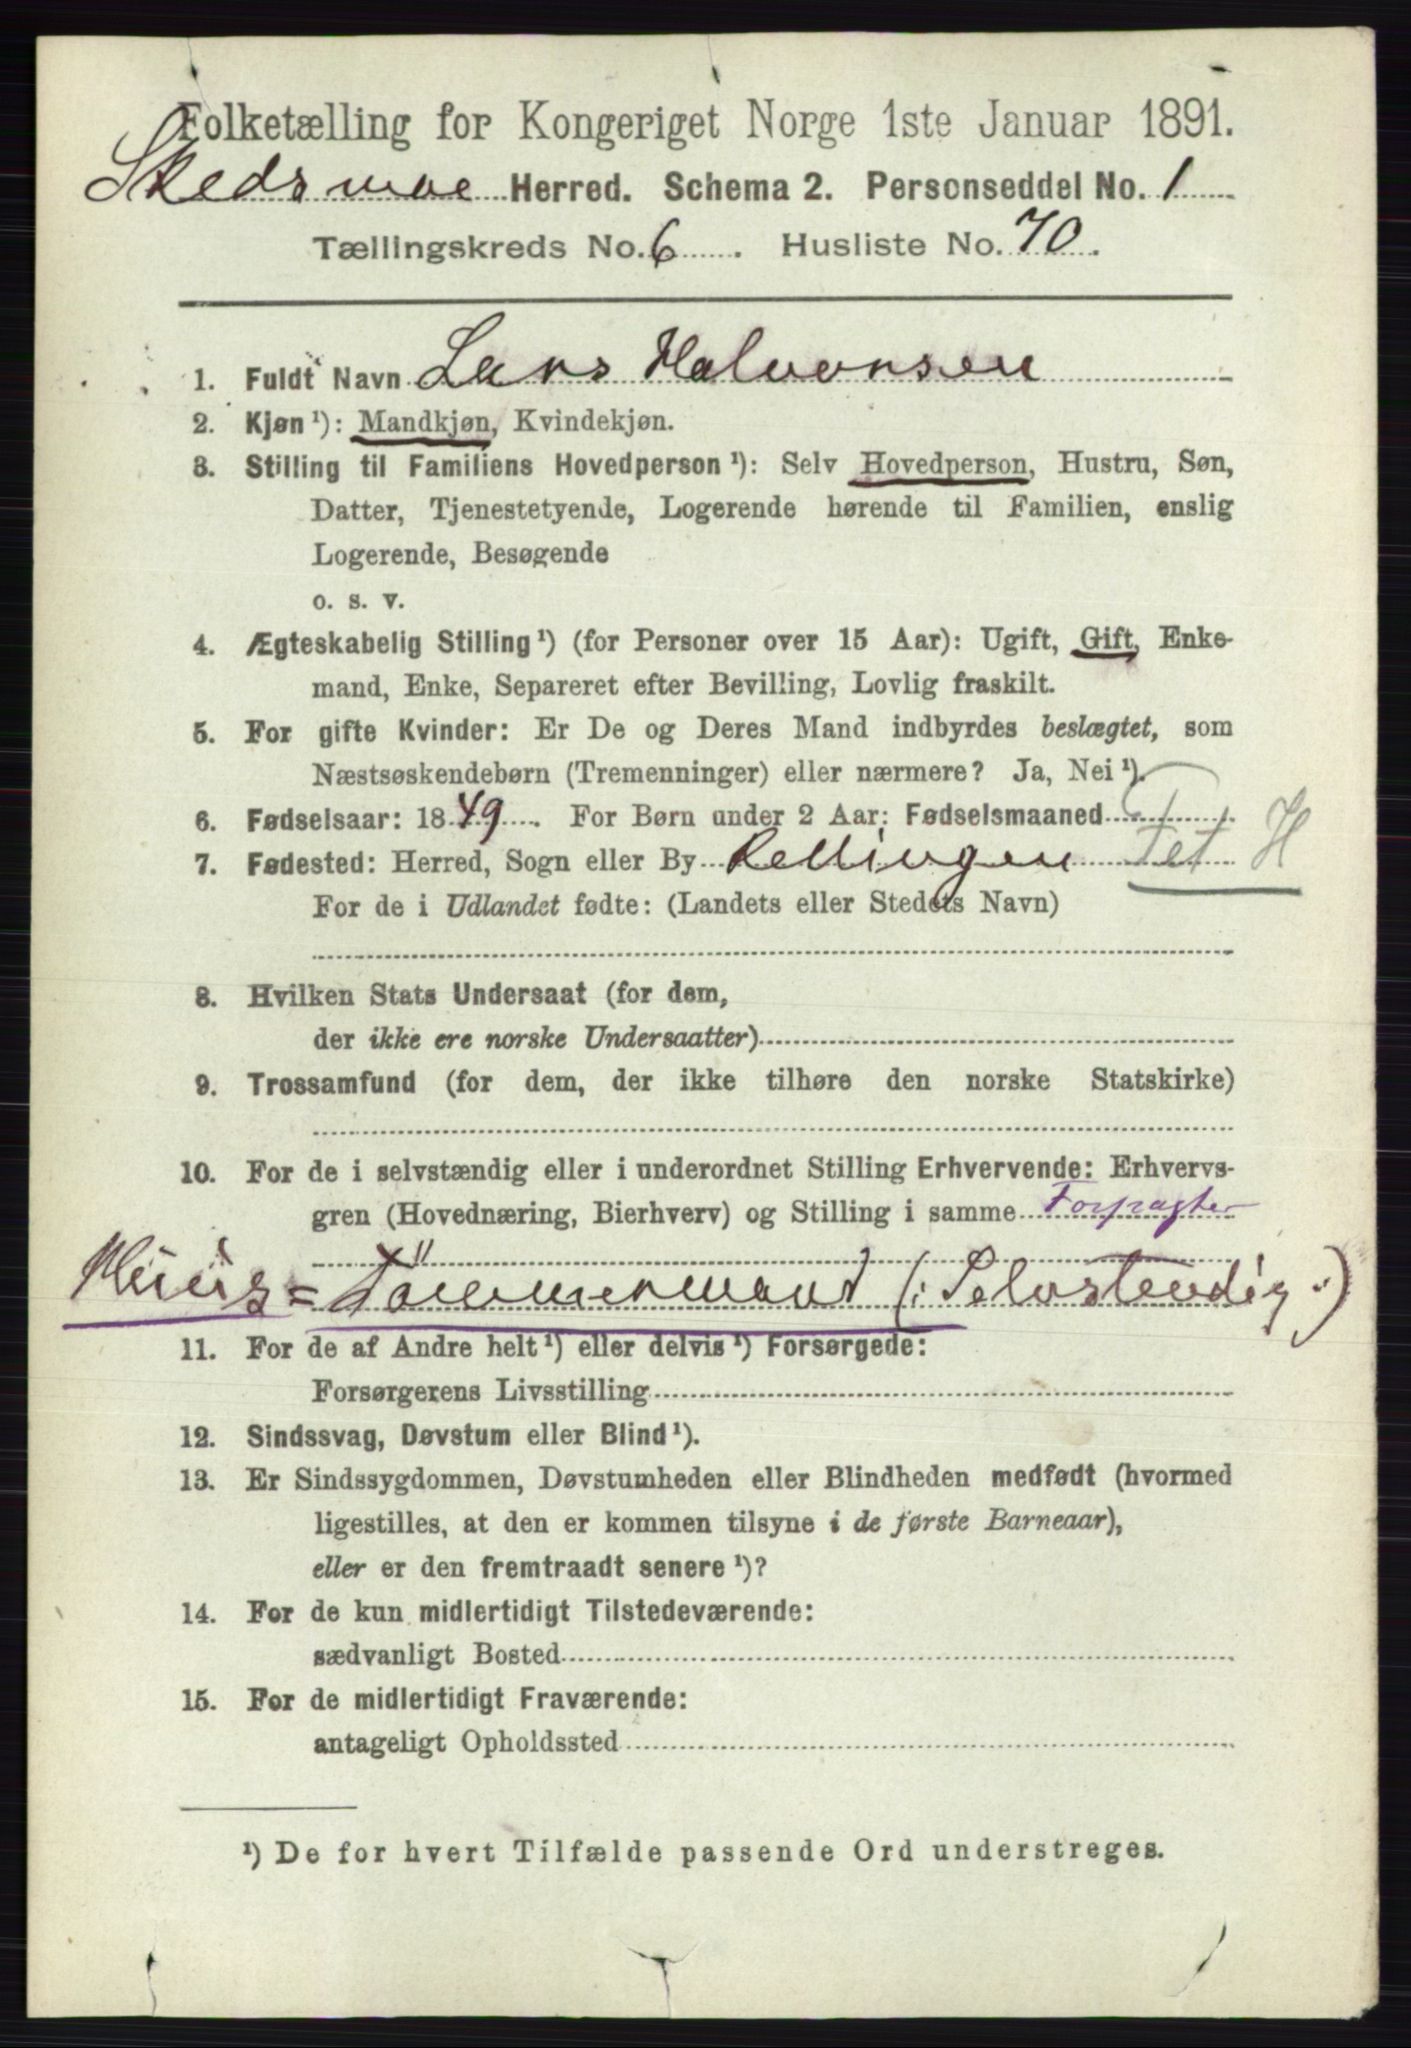 Folketælling for Kongeriget Norge 1ste Januar 1891.
Skedsmoe Herred. Schema 2. Personseddel No. 1
Tællingskreds No. 6. Husliste No. 70.
1. Fuldt Navn Lars Halvorsen
2. Kjøn ¹): Mandkjøn, Kvindekjøn.
3. Stilling til Familiens Hovedperson ¹): Selv Hovedperson, Hustru, Søn,
Datter, Tjenestetyende, Logerende hørende til Familien, enslig
Logerende, Besøgende
o. s. v.
4. Ægteskabelig Stilling ¹) (for Personer over 15 Aar): Ugift, Gift, Enke-
mand, Enke, Separeret efter Bevilling, Lovlig fraskilt.
5. For gifte Kvinder: Er De og Deres Mand indbyrdes beslægtet, som
Næstsøskendebørn (Tremenninger) eller nærmere? Ja, Nei ¹).
6. Fødselsaar: 1849. For Børn under 2 Aar: Fødselsmaaned
7. Fødested: Herred, Sogn eller By Rellingen Fet H
For de i Udlandet fødte: (Landets eller Stedets Navn)
8. Hvilken Stats Undersaat (for dem,
der ikke ere norske Undersaatter)
9. Trossamfund (for dem, der ikke tilhøre den norske Statskirke)
10. For de i selvstændig eller i underordnet Stilling Erhvervende: Erhvervs-
gren (Hovednæring, Bierhverv) og Stilling i samme Forpagter
Huus= Tömmermand (: Selvstendig :)
11. For de af Andre helt ¹) eller delvis ¹) Forsørgede:
Forsørgerens Livsstilling
12. Sindssvag, Døvstum eller Blind ¹).
13. Er Sindssygdommen, Døvstumheden eller Blindheden medfødt (hvormed
ligestilles, at den er kommen tilsyne i de første Barneaar),
eller er den fremtraadt senere ¹)?
14. For de kun midlertidigt Tilstedeværende:
sædvanligt Bosted
15. For de midlertidigt Fraværende:
antageligt Opholdssted
¹) De for hvert Tilfælde passende Ord understreges.